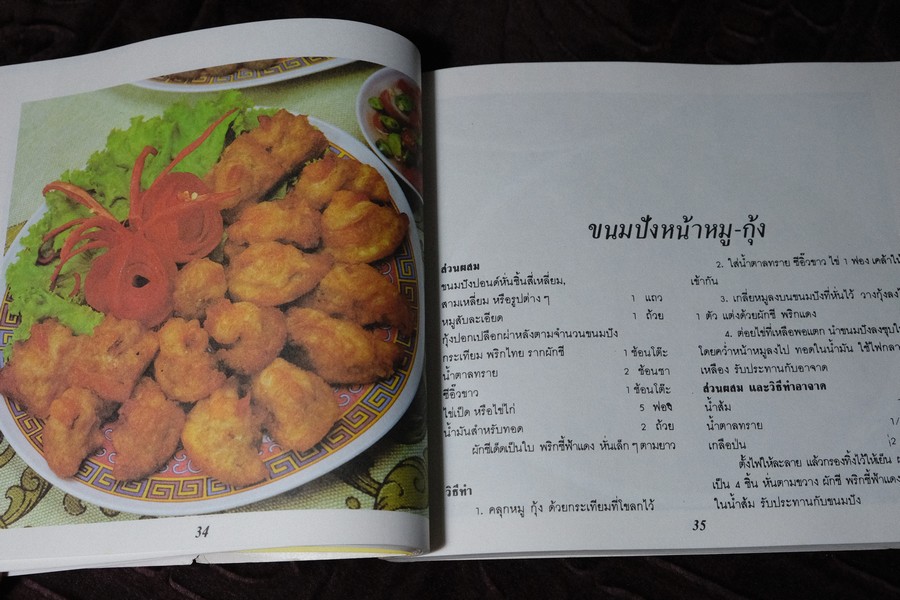 34
ขนมปังหน้าหมู-กุ้ง
ส่วนผสม
ขนมปังปอนด์หั่นชิ้นสี่เหลี่ยม,
สามเหลี่ยม หรือรูปต่าง ๆ 1 แถว
หมูสับละเอียด 1 ถ้วย
กุ้งปอกเปลือกผ่าหลังตามจำนวนขนมปัง
กระเทียม พริกไทย รากผักชี 1 ช้อนโต๊ะ
น้ำตาลทราย 2 ช้อนชา
ซีอิ๊วขาว 1 ช้อนโต๊ะ
ไข่เป็ด หรือไข่ไก่ 5 ฟอง
น้ำมันสำหรับทอด 2 ถ้วย
ผักชีเด็ดเป็นใบ พริกชี้ฟ้าแดง หั่นเล็ก ๆ ตามยาว
วิธีทำ
1. คลุกหมู กุ้ง ด้วยกระเทียมที่โขลกไว้
2. ใส่น้ำตาลทราย ซีอิ๊วขาว ไข่ 1 ฟอง เคล้าให้
เข้ากัน
3. เกลี่ยหมูลงบนขนมปังที่หั่นไว้ วางกุ้งลง
1 ตัว แต่งด้วยผักชี พริกแดง
4. ต่อยไข่ที่เหลือพอแตก นำขนมปังลงชุบ
โดยคว่ำหน้าหมูลงไป ทอดในน้ำมัน ใช้ไฟกลาง
เหลือง รับประทานกับอาจาด
ส่วนผสม และวิธีทำอาจาด
น้ำส้ม
น้ำตาลทราย 1/
เกลือป่น
ตั้งไฟให้ละลาย แล้วกรองทิ้งไว้ให้เย็น
เป็น 4 ชิ้น หั่นตามขวาง ผักชี พริกชี้ฟ้าแดง
ในน้ำส้ม รับประทานกับขนมปัง
35